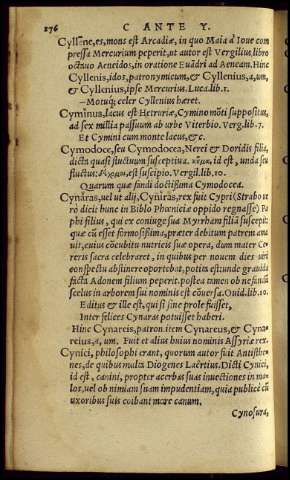 276 C ANTE Y.
Cyllēne,es,mons est Arcadiæ, in quo Maia à Ioue com
pressa Mercurium peperit,ut autor est Vergilius,libro
octauo Aeneidos, in oratione Euādri ad Aeneam. Hinc
Cyllenis,idos, patronymicum,& Cyllenius,a,um,
& Cyllenius,ipse Mercurius.Luca.lib.1.
—Motuq; celer Cyllenius hæret.
Cyminus,lacus est Hetruriæ, Cymino mōti suppositus,
ad sex millia passuum ab urbe Viterbio. Verg.lib.7.
Et Cymini cum monte lacus,& c.
Cymodoce,seu Cymodocea,Nerei & Doridis filia,
dicta quasi fluctuum susceptiua. κῦμα, id est , unda seu
fluctus: δέχομαι,est suscipio. Vergil.lib.10.
Quarum quæ fandi doctissima Cymodocea.
Cynăras,uel ut alij, Cyniras,rex fuit Cypri (Strabo it
rò dicit hunc in Biblo Phœnicia oppido regnasse) Pa
phi filius , qui ex coniuge sua Myrrham filia suscepit:
quæ cū esset formosissima, præter debitum patrem ama
uit,cuius cōcubitu nutricis suæ opera, dum mater Ce-
reris sacra celebraret , in quibus per nouem dies uiri
conspectu abstinere oportebat, potita est:unde grauida
facta Adonem filium peperit. postea tamen ob nefandū
scelus in arborem sui nominis est cōuersa.Ouid.lib.10.
Editus & ille est,qui si sine prole fuisset,
Inter felices Cynaras potuisset haberi.
Hinc Cynareis, patron. item Cynareus,& Cyna-
reius,a, um. Fuit et alius huius nominis Assyriæ rex.
Cynici, philosophi erant, quorum autor fuit Antisthe-
nes,de quibus multa Diogenes Laërtius.Dicti Cynici,
id est , canini, propter acerbas suas inuectiones in mo-
res,uel ob nimiam suam impudentiam, quia publicè cū
uxoribus suis coibant more canum.
Cynosura,